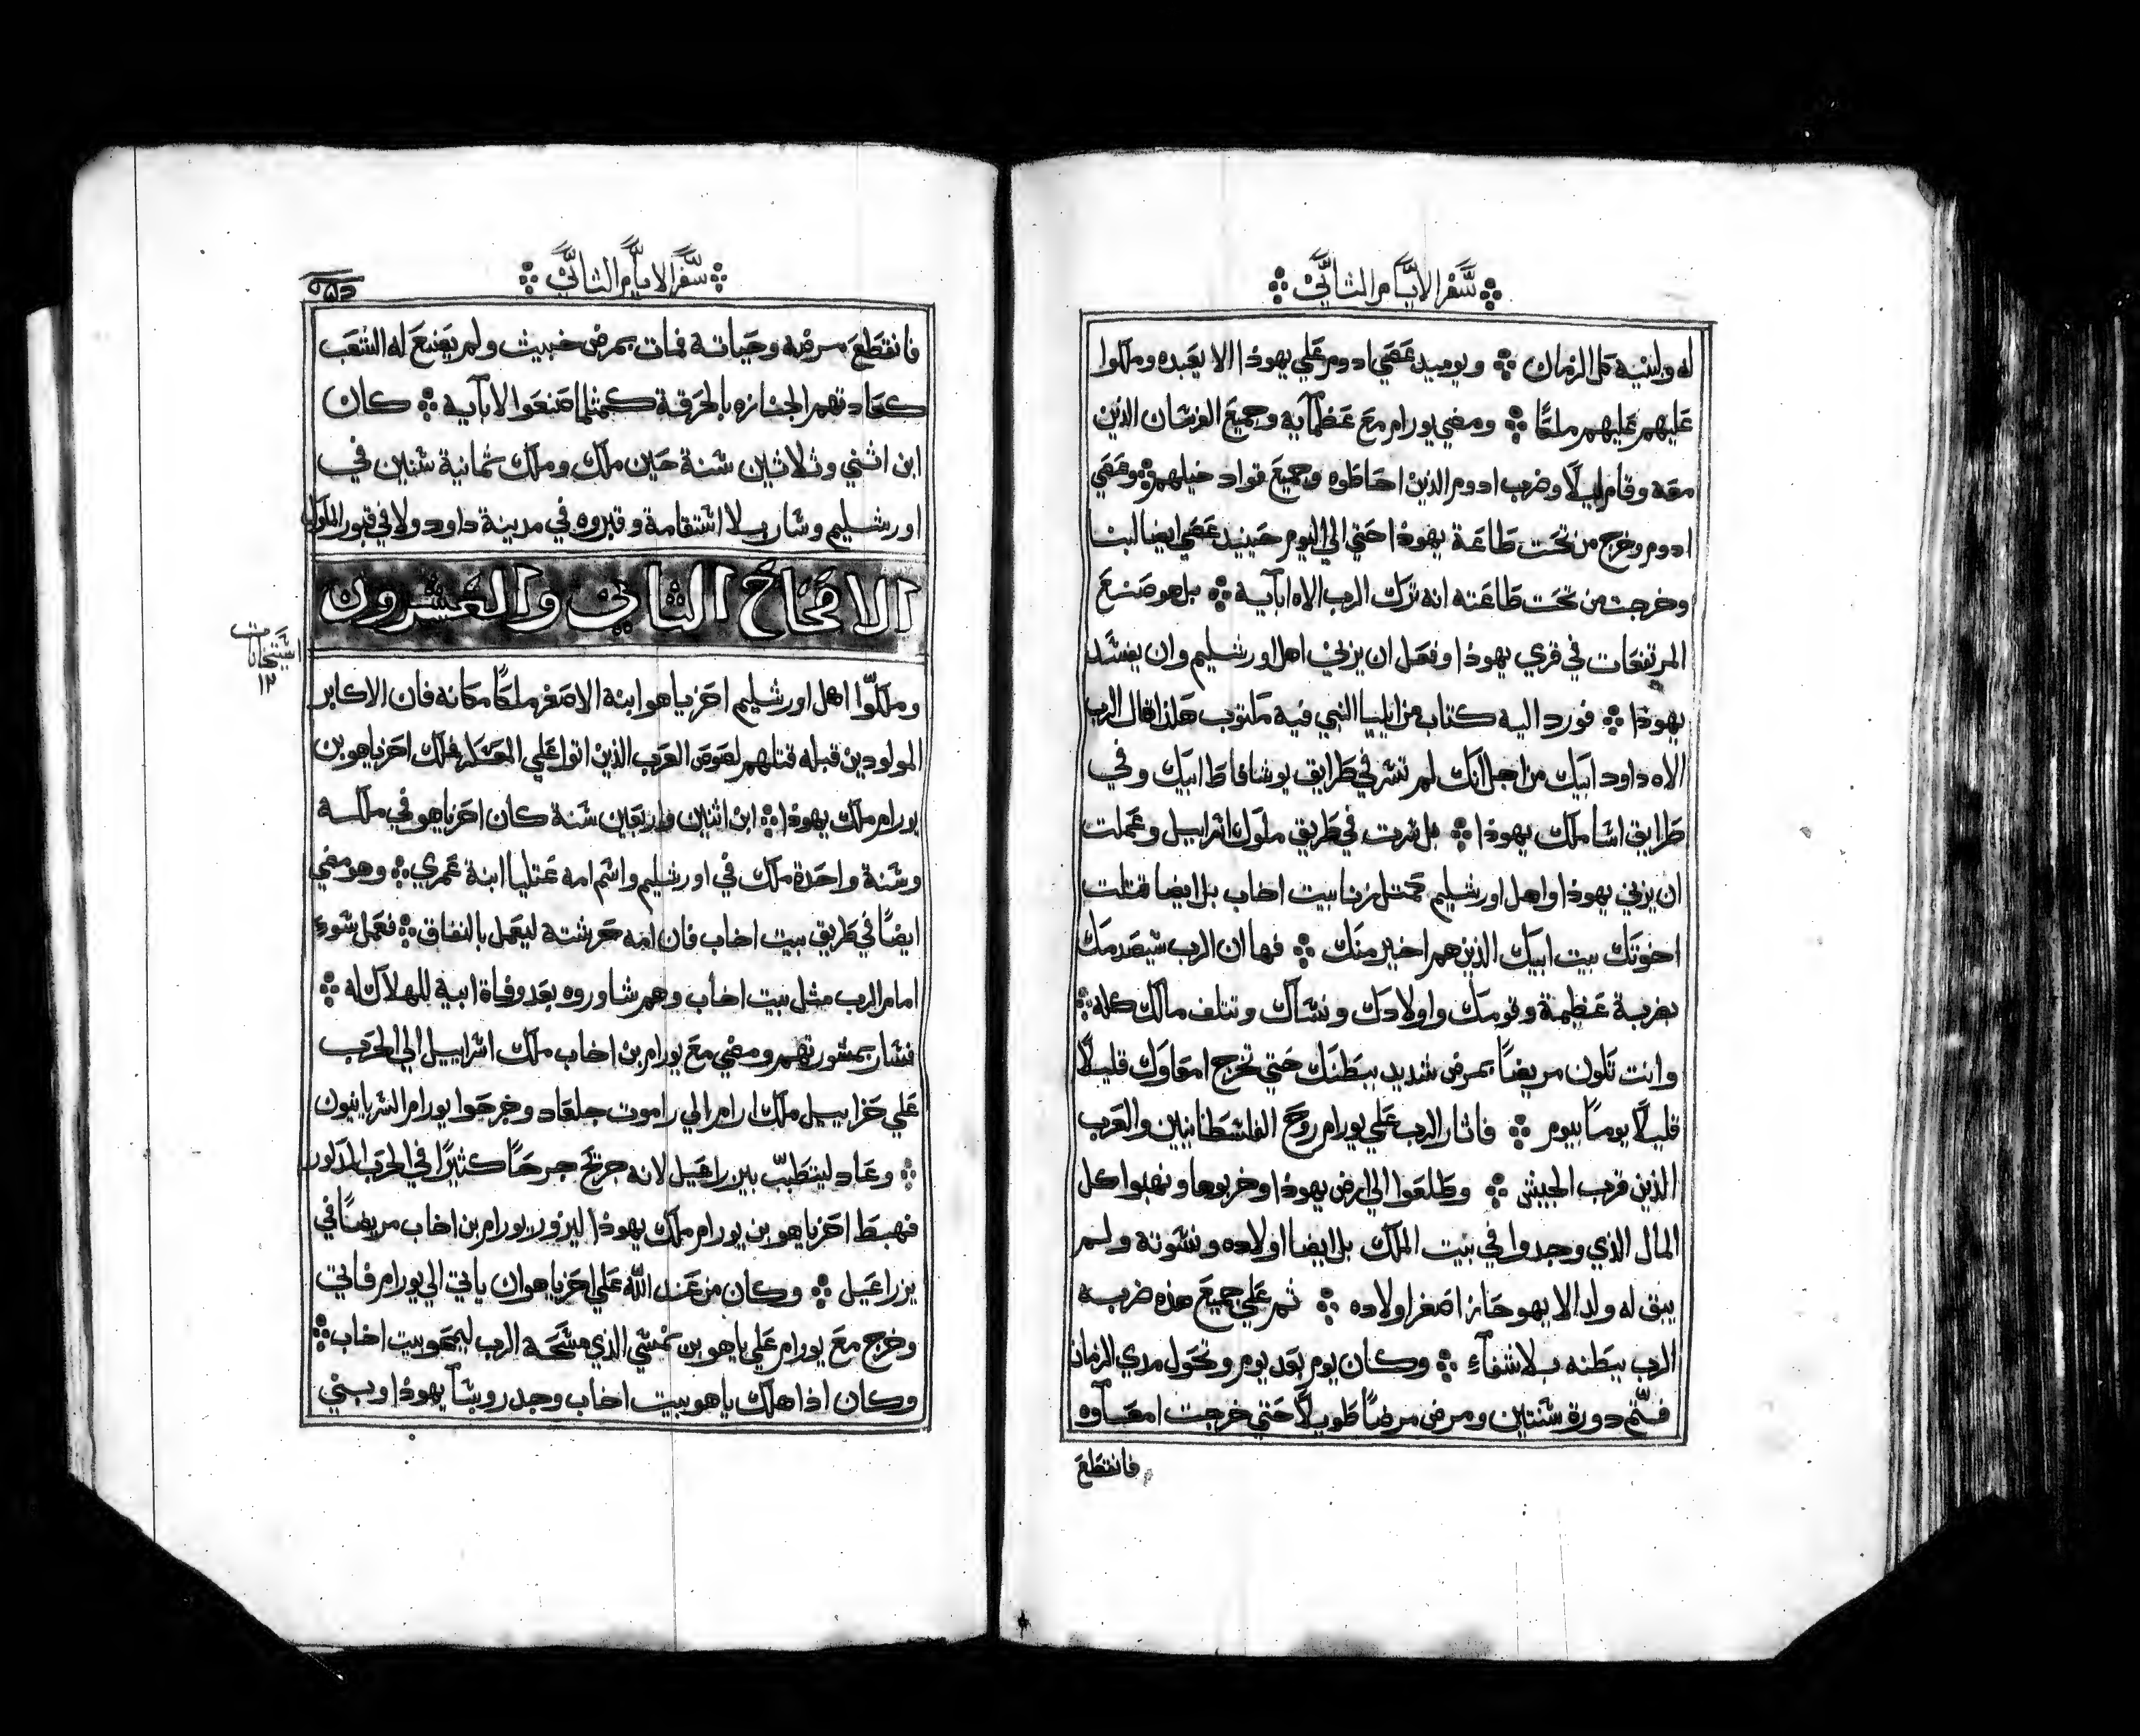 سفر الايام الثاني
له ولبنيه كل الزمان ويوميد عصي ادوم علي يهودا الا يعبده وملكوا
عليهم عليهم ملكًا ومضي يورام مع عظمآيه وجميع الفرسان الذين
معه وقام ليلًا وضرب ادوم الذين احاطوه وجميع قواد خيلهم وعصي
ادوم وخرج من تحت طاعة يهودا حتي الي اليوم حينيد عصي ايضا لبنا
وخرجت من تحت طاعته انه ترك الرب الاه ابآيه بل هو صنع
المرتفعات في قري يهودا وفعل ان يزني اهل اورشليم وان يفسد
يهودا فورد اليه كتاب من ايليا النبي فيه مكتوب هكذا قال الرب
الاه داود ابيك من اجل انك لم تسر في طرايق يوشافاط ابيك وفي
طرايق اسا ملك يهودا بل سرت في طريق ملوك اسراييل وعملت
ان يزني يهودا واهل اورشليم كمثل زنا بيت اخاب بل ايضا قتلت
اخوتك بيت ابيك الذين هم اخير منك فها ان الرب سيصدمك
بضربة عظيمة وقومك واولادك ونسآك وتتلف مالك كله
وانت تكون مريضًا بمرض شديد ببطنك حتي تخرج امعاوك قليلًا
قليلًا يومًا بيوم فاثار الرب علي يورام روح الفلسطانيين والعرب
الذين قرب الحبيش وطلعوا الي ارض يهودا وخربوها ونهبوا كل
المال الذي وجدوا في بيت الملك بل ايضا اولاده ونسوته ولم
يبق له ولد الا يهوحاز اصغر اولاده ثم علي جميع هذه ضربه
الرب ببطنه بلا شفآء وكان يوم بعد يوم وتحول مدي الزمان
فتم دورة سنتين ومرض مرضًا طويلًا حتي خرجت امعآوه
فانقطع
سفر الايام الثاني
فانقطع مرضه وحياته فمات بمرض خبيث ولم يصنع له الشعب
كعادتهم الجنازه بالحرقة كمثلما صنعوا لابآيه كان
ابن اثني وثلاثين سنة حين ملك وملك ثمانية سنين في
اورشليم وسار بلا استقامة وقبروه في مدينة داود ولا في قبور الملوك
الاصحاح الثاني والعشرون
وملكوا اهل اورشليم احزياهو ابنه الاصغر ملكًا مكانه فان الاكابر
المولودين قبله قتلهم لصوص العرب الذين اتوا علي المعسكر فملك احزياهو بن
يورام ملك يهودا ابن اثنين واربعين سنة كان احزياهو في ملكه
وسنة واحدة ملك في اورشليم واسم امه عتليا ابنة عمري وهو مضي
ايضًا في طريق بيت اخاب فان امه حرشته ليعمل بالنفاق فعمل سوء
امام الرب مثل بيت اخاب وهم شاوروه بعد وفاة ابيه للهلاك له
فسار بمشورتهم ومضي مع يورام بن اخاب ملك اسراييل الي الحرب
علي حزاييل ملك ارام الي راموت جلعاد وجرحوا يورام السريانيون
وعاد ليتطبب بيزراعيل لانه جرح جرحًا كثيرًا في الحرب المذكور
فهبط احزياهو بن يورام ملك يهودا ليزور يورام بن اخاب مريضًا في
يزراعيل وكان من عند الله علي احزياهو ان ياتي الي يورام فاتي
وخرج مع يورام علي ياهو بن نمشي الذي مسحه الرب ليمحو بيت اخاب
وكان اذا هلك ياهو بيت اخاب وجد روسآ يهودا وبني